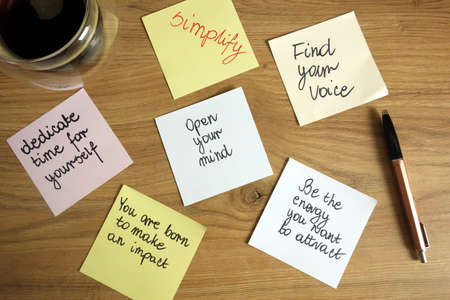 simplify
Find
your
voice
dedicate
time for
yourself
Open
your
mind
You are born
to make
an impact
Be the
energy
you want
to attract